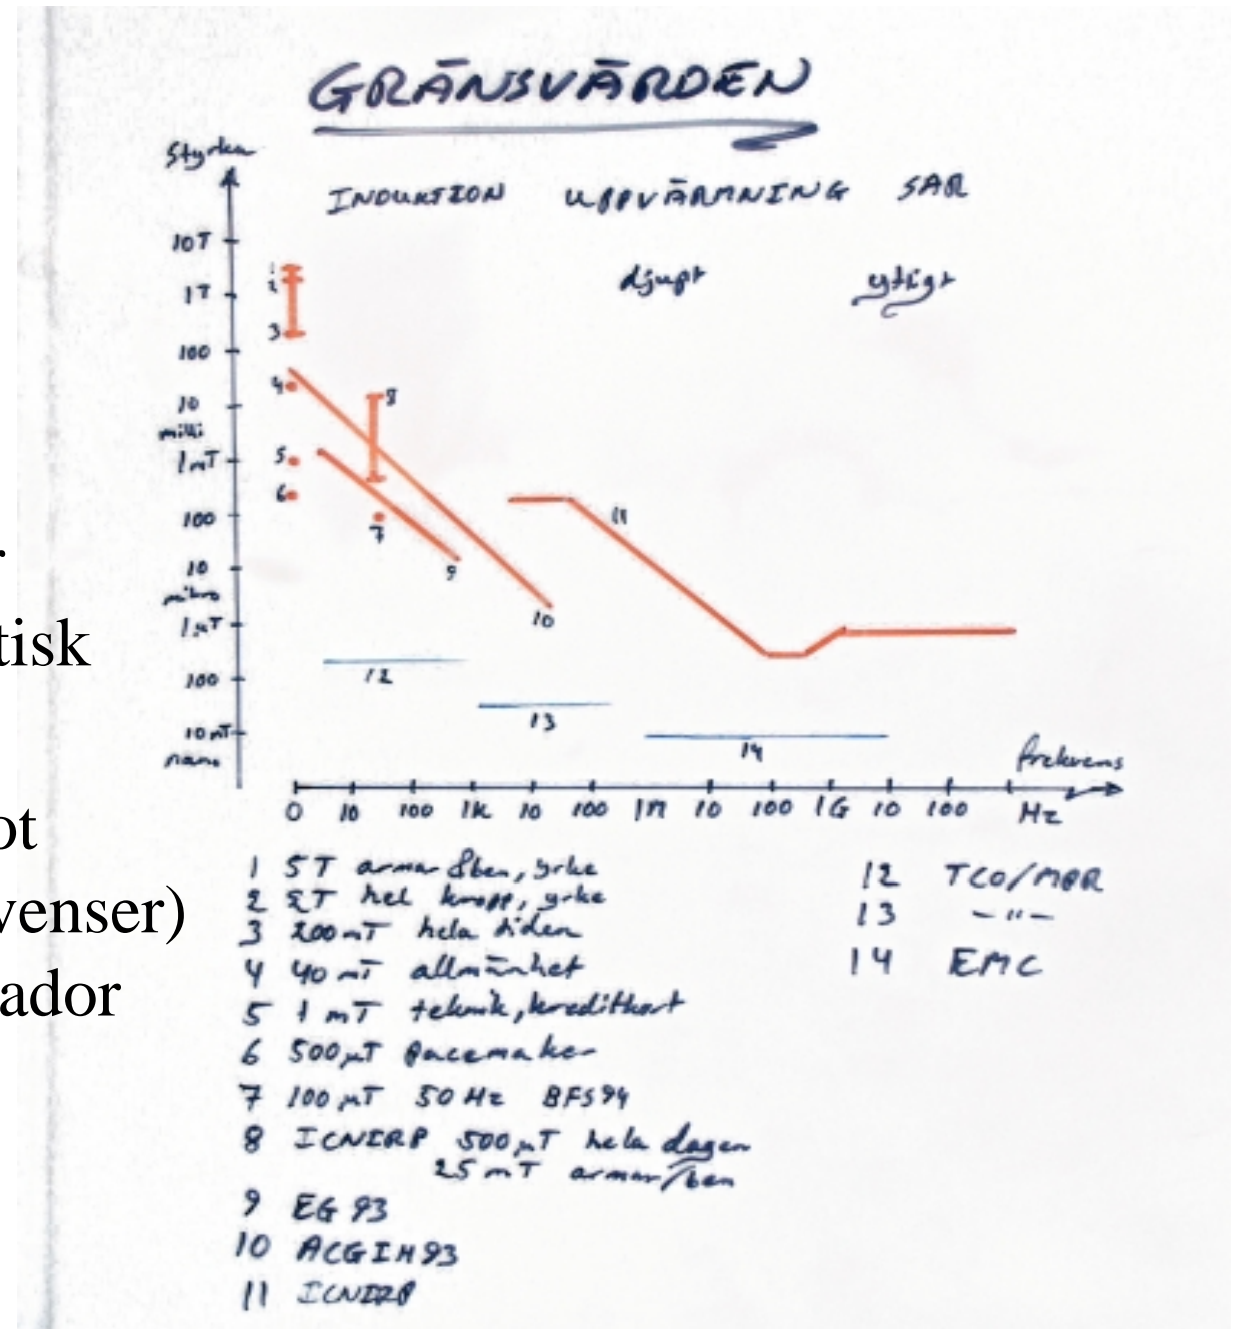 GRÄNSVÄRDEN
Styrka
INDUKTION UPPVÄRMNING SAR
djupt ytligt
10T
1T
100
10
milli
1mT
100
10
mikro
1µT
100
10 nT
nano
1
2
3
4
5
6
7
8
9
10
11
12
13
14
frekvens
0 10 100 1K 10 100 1M 10 100 1G 10 100 Hz
1 5T armar & ben, yrke
2 2T hel kropp, yrke
3 200 mT hela tiden
4 40 mT allmänhet
5 1 mT teknik, kreditkort
6 500 µT pacemaker
7 100 µT 50 Hz BFS94
8 ICNIRP 500 µT hela dagen
25 mT armar/ben
9 EG 93
10 ACGIH 93
11 ICNIRP
12 TCO/MPR
13 - " -
14 EMC
.
tisk
ot
venser)
ador